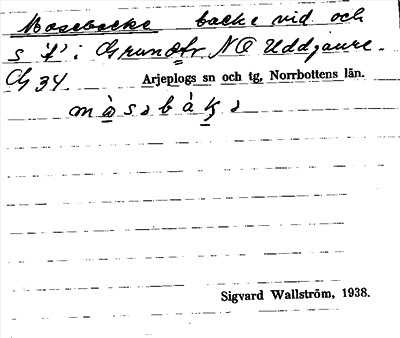 Mosebacke backe vid och
s "f" i Grund fr NO Uddjaure.
Cg 34 Arjeplogs sn och tg, Norrbottens län.
Sigvard Wallström, 1938.